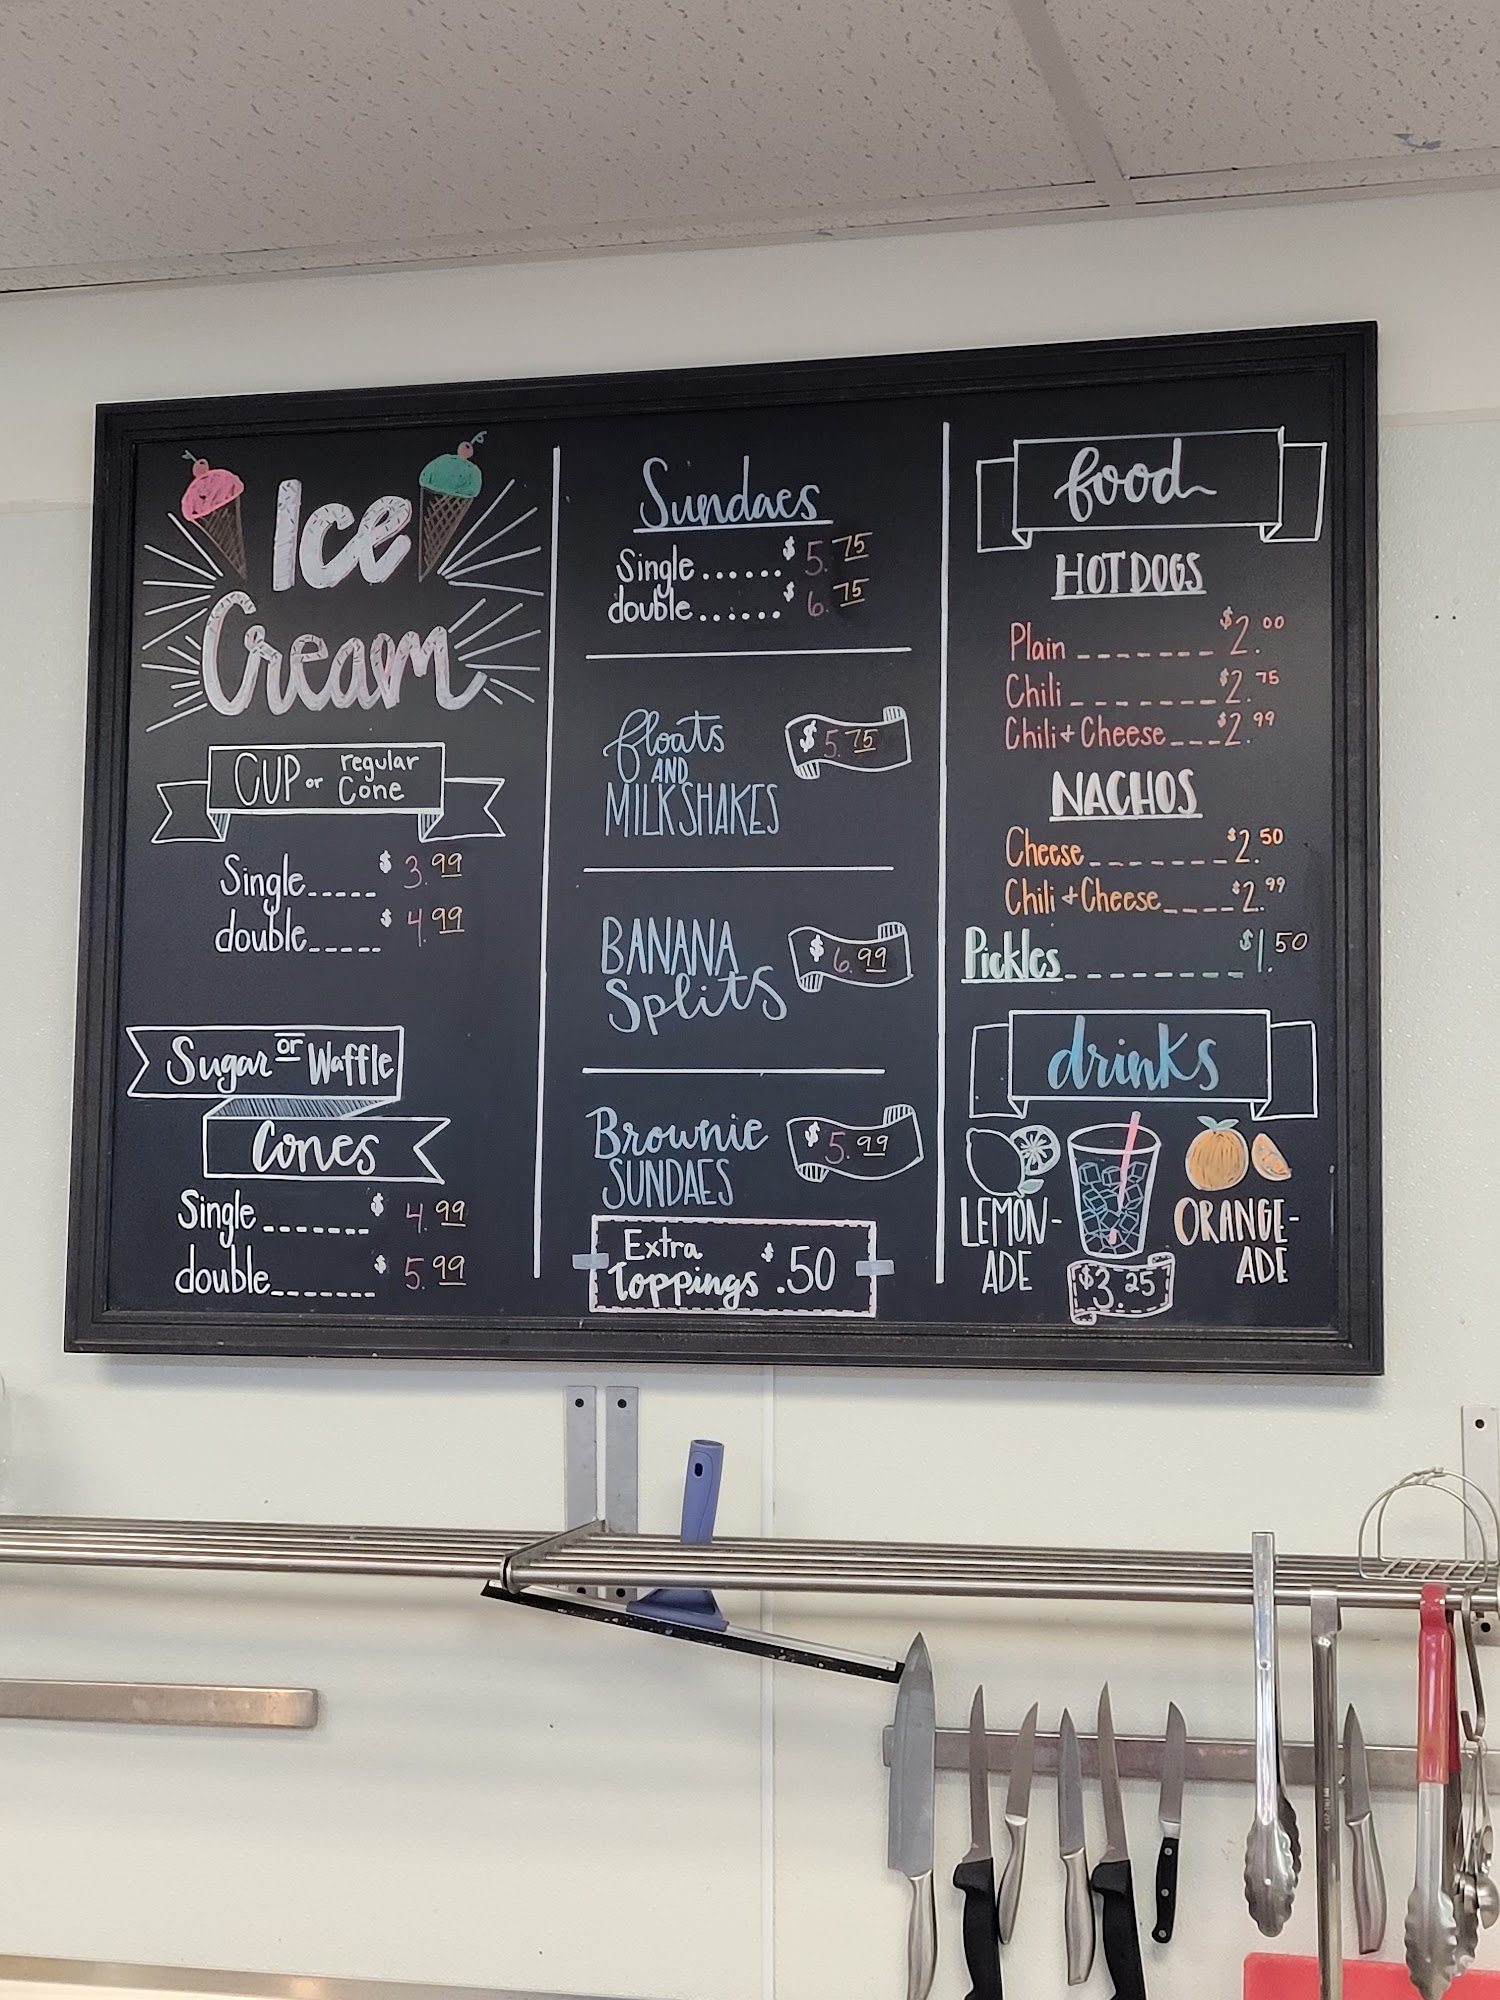 Ice
Cream
CUP or regular Cone
Single_____ $ 3.99
double_____ $ 4.99
Sugar or Waffle
Cones
Single_______ $ 4.99
double_______ $ 5.99
Sundaes
Single...... $ 5.75
double...... $ 6.75
floats
AND
MILKSHAKES
$ 5.75
BANANA
Splits
$ 6.99
Brownie
SUNDAES
$ 5.99
Extra
Toppings $ .50
food
HOT DOGS
Plain _______ $2.00
Chili _______ $2.75
Chili + Cheese___ $2.99
NACHOS
Cheese_______ $2.50
Chili + Cheese____ $2.99
Pickles_________ $1.50
drinks
LEMON-
ADE
$3.25
ORANGE-
ADE